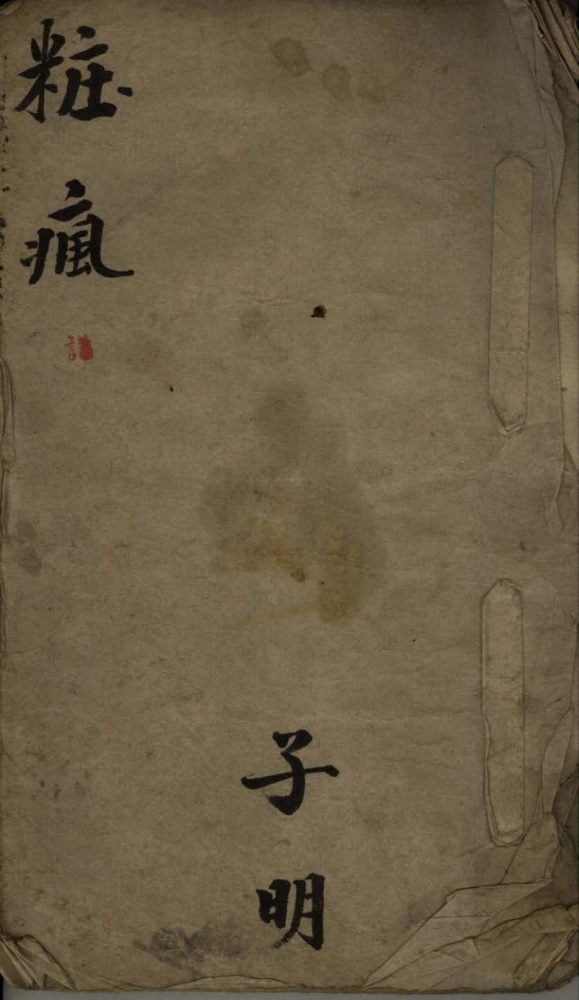 粧瘋
子明